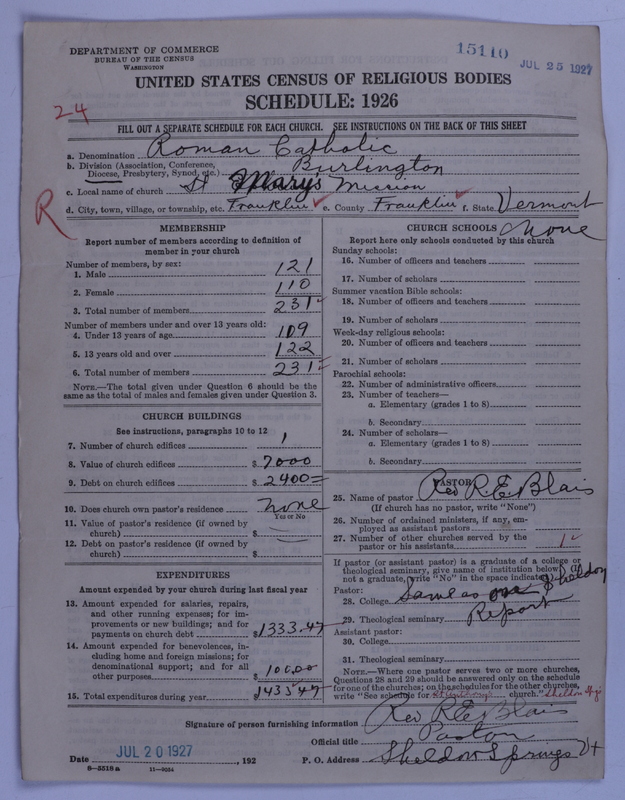 DEPARTMENT OF COMMERCE
BUREAU OF THE CENSUS
WASHINGTON
15110
JUL 25 1927
UNITED STATES CENSUS OF RELIGIOUS BODIES
SCHEDULE: 1926
24
FILL OUT A SEPARATE SCHEDULE FOR EACH CHURCH. SEE INSTRUCTIONS ON THE BACK OF THIS SHEET
a. Denomination Roman Catholic
b. Division (Association, Conference, Diocese, Presbytery, Synod, etc.) Burlington
c. Local name of church St Marys Mission
R
d. City, town, village, or township, etc. Franklin e. County Franklin f. State Vermont
MEMBERSHIP
Report number of members according to definition of member in your church
Number of members, by sex:
1. Male 121
2. Female 110
3. Total number of members 231
Number of members under and over 13 years old:
4. Under 13 years of age 109
5. 13 years old and over 122
6. Total number of members 231
NOTE.—The total given under Question 6 should be the same as the total of males and females given under Question 3.
CHURCH BUILDINGS
See instructions, paragraphs 10 to 12
7. Number of church edifices 1
8. Value of church edifices $7000
9. Debt on church edifices $2400
10. Does church own pastor's residence none
Yes or No
11. Value of pastor's residence (if owned by church) $
12. Debt on pastor's residence (if owned by church) $
EXPENDITURES
Amount expended by your church during last fiscal year
13. Amount expended for salaries, repairs, and other running expenses; for improvements or new buildings; and for payments on church debt $1333.47
14. Amount expended for benevolences, including home and foreign missions; for denominational support; and for all other purposes 100.00
15. Total expenditures during year $1433.47
CHURCH SCHOOLS None
Report here only schools conducted by this church
Sunday schools:
16. Number of officers and teachers
17. Number of scholars
Summer vacation Bible schools:
18. Number of officers and teachers
19. Number of scholars
Week-day religious schools:
20. Number of officers and teachers
21. Number of scholars
Parochial schools:
22. Number of administrative officers
23. Number of teachers—
a. Elementary (grades 1 to 8)
b. Secondary
24. Number of scholars—
a. Elementary (grades 1 to 8)
b. Secondary
PASTOR
25. Name of pastor Rev R. E. Blais
(If church has no pastor, write "None")
26. Number of ordained ministers, if any, employed as assistant pastors
27. Number of other churches served by the pastor or his assistants 1
If pastor (or assistant pastor) is a graduate of a college or theological seminary, give name of institution below. If not a graduate, write "No" in the space indicated.
Pastor:
28. College Same as on Sheldon
29. Theological seminary Report
Assistant pastor:
30. College
31. Theological seminary
NOTE.—Where one pastor serves two or more churches, Questions 28 and 29 should be answered only on the schedule for one of the churches; on the schedules for the other churches, write "See schedule for church." Sheldon
Signature of person furnishing information Rev R E Blais
Official title Pastor
Date JUL 20 1927, 192
P. O. Address Sheldon Springs Vt
8-5518a 11-9034